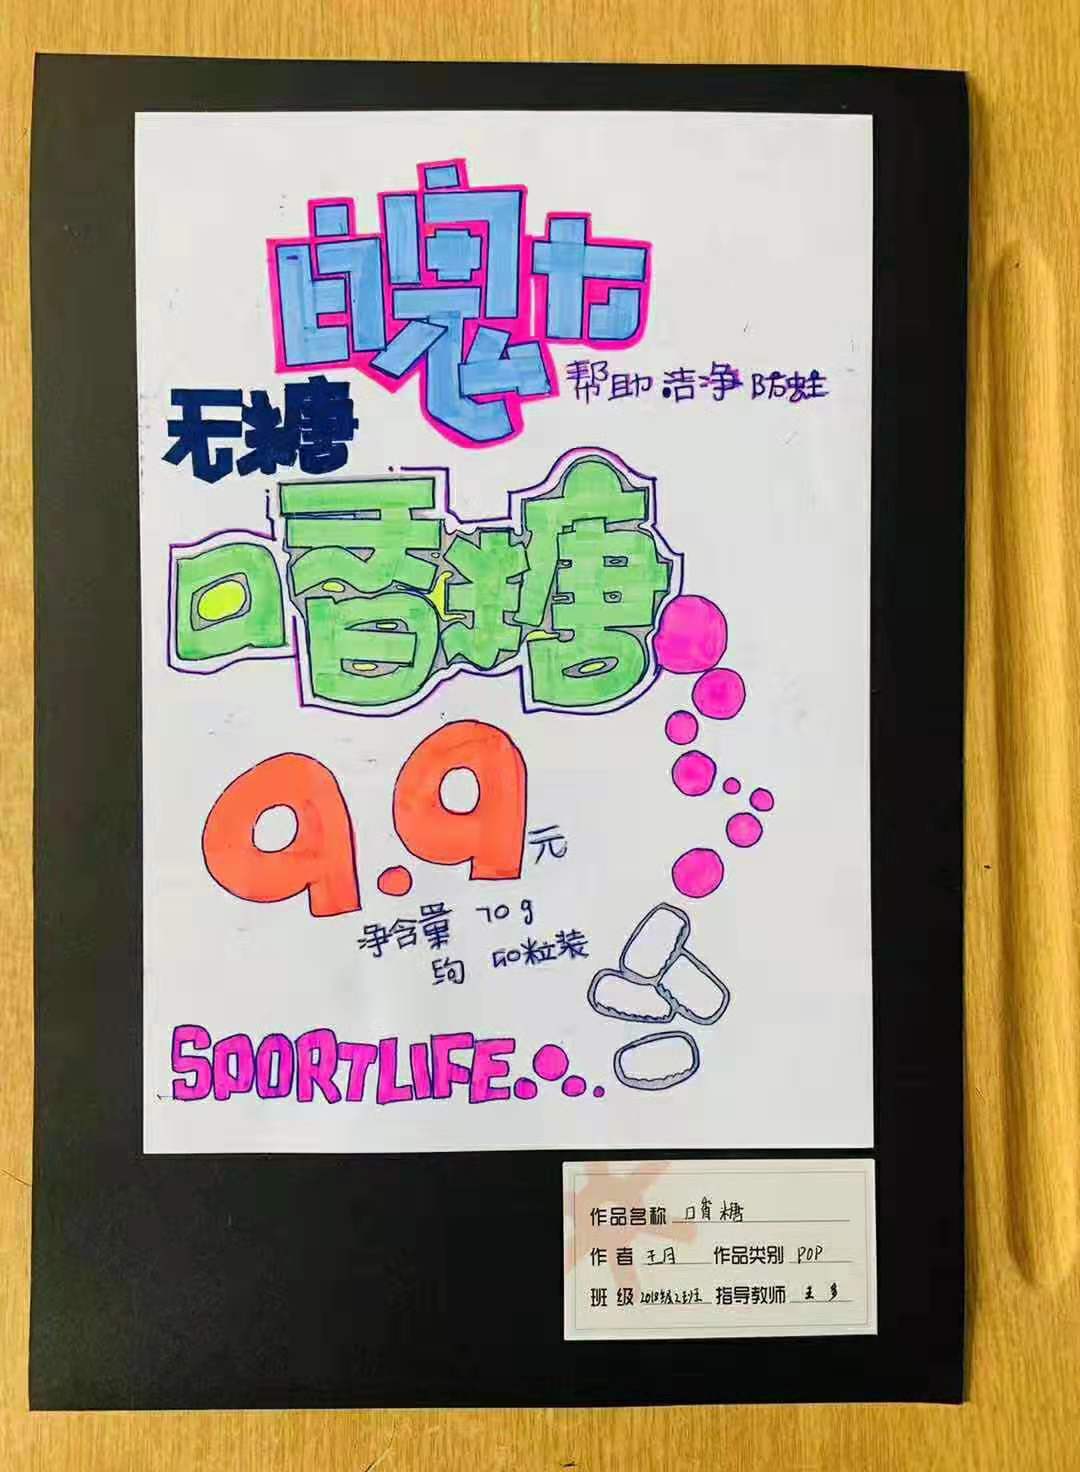 魄力
帮助 洁净 防蛀
无糖
口香糖
9.9元
净含量 70g
约 40粒装
SPORTLIFE
作品名称 口香糖
作者 王月 作品类别 POP
班级 2018级2班 指导教师 王多